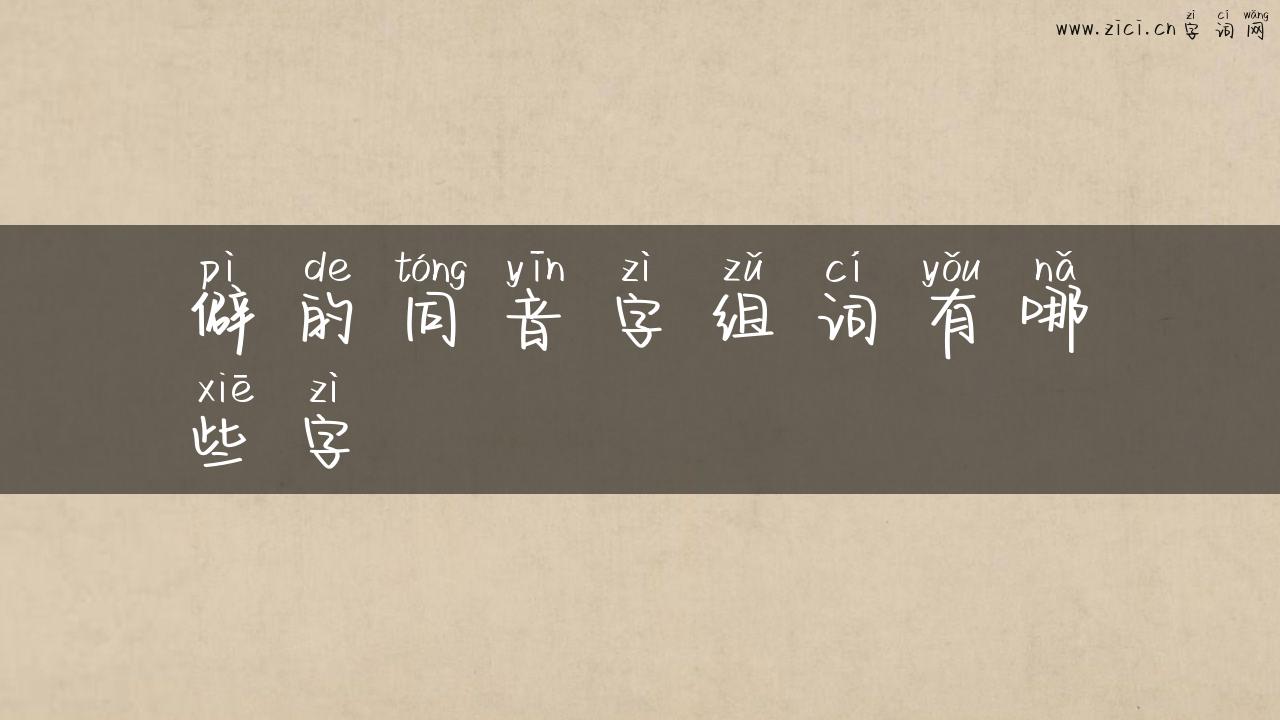 zì cí wǎng
www.zici.cn字词网
pì de tóng yīn zì zǔ cí yǒu nǎ
僻的同音字组词有哪
xiē zì
些字